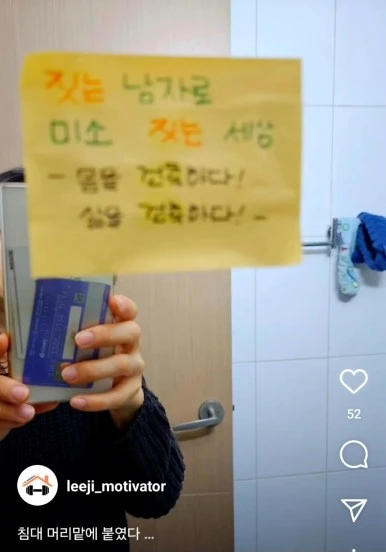 짓는 남자로
미소 짓는 세상
- 몸을 건축하다!
삶을 건축하다! -
52
leeji_motivator
침대 머리맡에 붙였다 ...